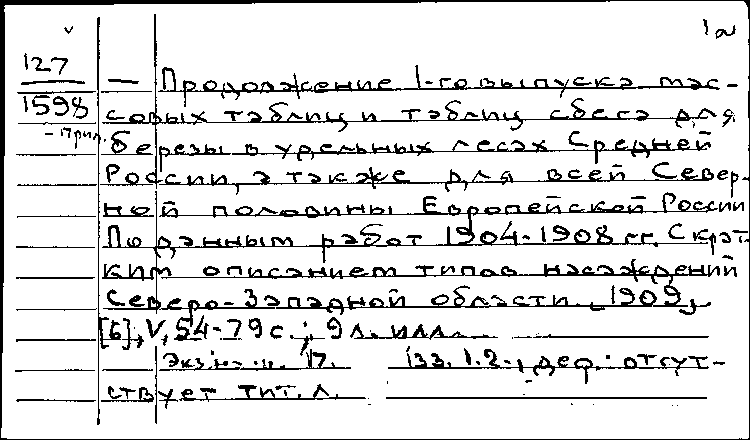 127
1598
- прил.
— Продолжение 1-го выпуска мас-
совых таблиц и таблиц сбега для
березы в удельных лесах Средней
России, а также для всей Север-
ной половины Европейской России
По данным работ 1904-1908 гг. С крат-
ким описанием типов насаждений
Северо-Западной области. [1909].
[6], V, 54-79 с.; 9 л. илл.
133. 1.2., деф.: отсут-
ствует тит. л.